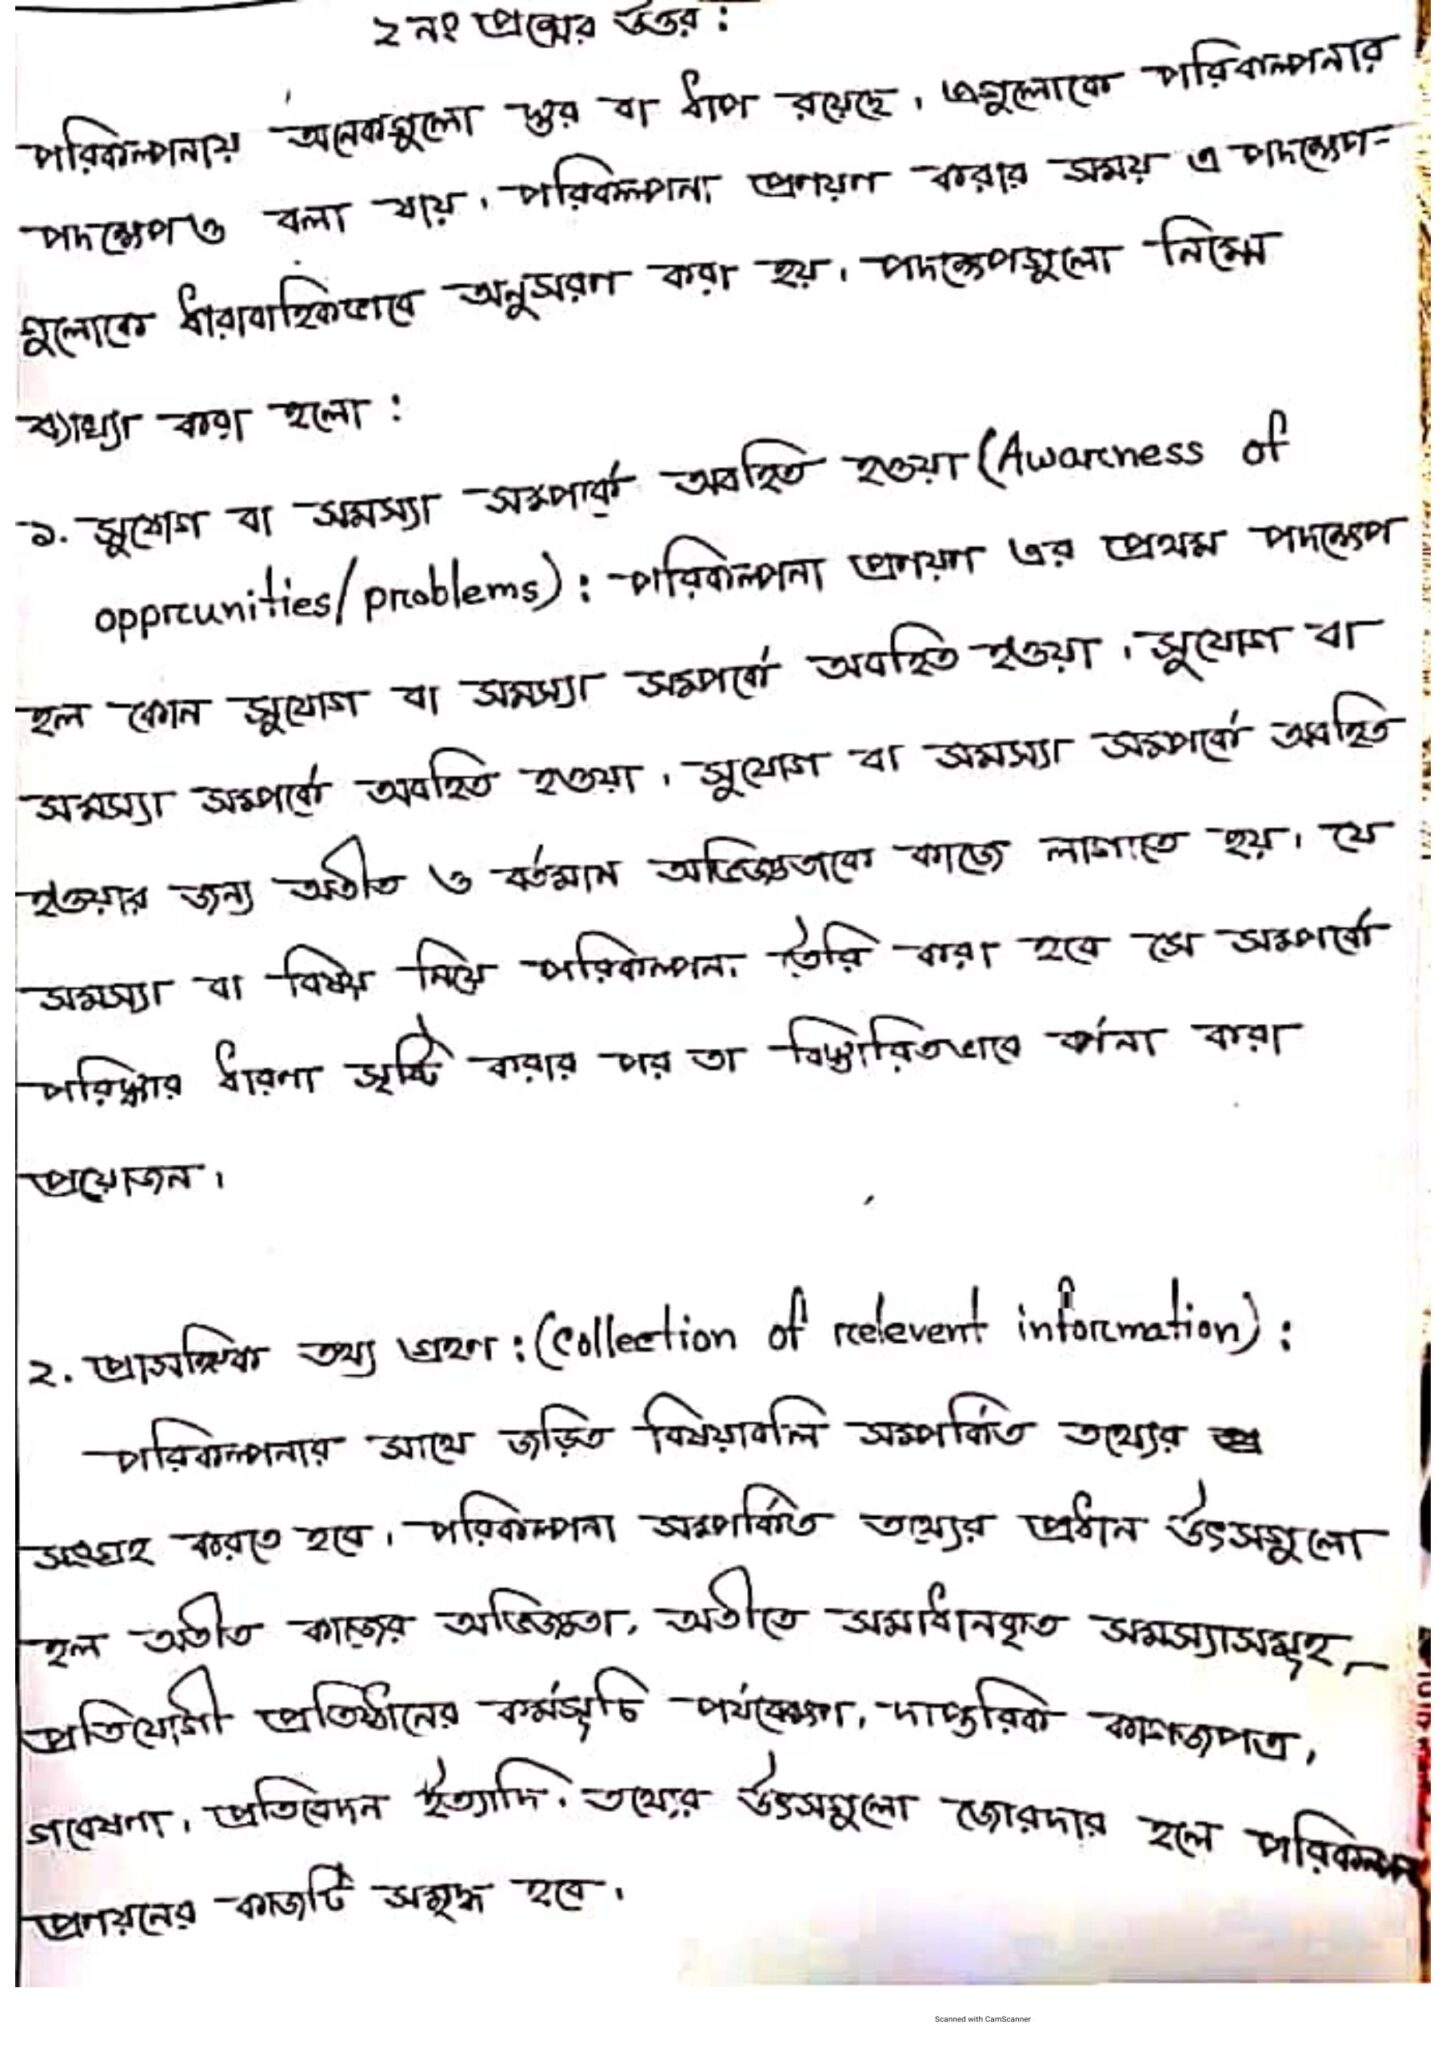 ২ নং প্রশ্নের উত্তর :
পরিকল্পনায় অনেকগুলো স্তর বা ধাপ রয়েছে। এগুলোকে পরিকল্পনার
পদক্ষেপও বলা যায়। পরিকল্পনা প্রণয়ণ করার সময় এ পদক্ষেপ-
গুলোকে ধারাবাহিকভাবে অনুসরণ করা হয়। পদক্ষেপগুলো নিম্মে
ব্যাখ্যা করা হলো :
১. সুযোগ বা সমস্যা সম্পর্কে অবহিত হওয়া (Awareness of
opprcunities/problems) : পরিকল্পনা প্রণয়ণ এর প্রথম পদক্ষেপ
হল কোন সুযোগ বা সমস্যা সম্পর্কে অবহিত হওয়া। সুযোগ বা
সমস্যা সম্পর্কে অবহিত হওয়া। সুযোগ বা সমস্যা সম্পর্কে অবহিত
হওয়ার জন্য অতীত ও বর্তমান অভিজ্ঞতাকে কাজে লাগাতে হয়। যে
সমস্যা বা বিষয় নিয়ে পরিকল্পনা তৈরি করা হবে সে সম্পর্কে
পরিষ্কার ধারণা সৃষ্টি করার পর তা বিস্তারিতভাবে বর্ণনা করা
প্রয়োজন।
২. প্রাসঙ্গিক তথ্য গ্রহণ : (Collection of relevent information) :
পরিকল্পনার সাথে জড়িত বিষয়াবলি সম্পর্কিত তথ্যের
সংগ্রহ করতে হবে। পরিকল্পনা সম্পর্কিত তথ্যের প্রধান উৎসগুলো
হল অতীত কাজের অভিজ্ঞতা, অতীতে সমাধানকৃত সমস্যাসমূহ,
প্রতিযোগী প্রতিষ্ঠানের কর্মসূচি পর্যবেক্ষণ, দাপ্তরিক কাগজপত্র,
গবেষণা, প্রতিবেদন ইত্যাদি। তথ্যের উৎসগুলো জোরদার হলে পরিকল্পনা
প্রণয়নের কাজটি সমৃদ্ধ হবে।
Scanned with CamScanner